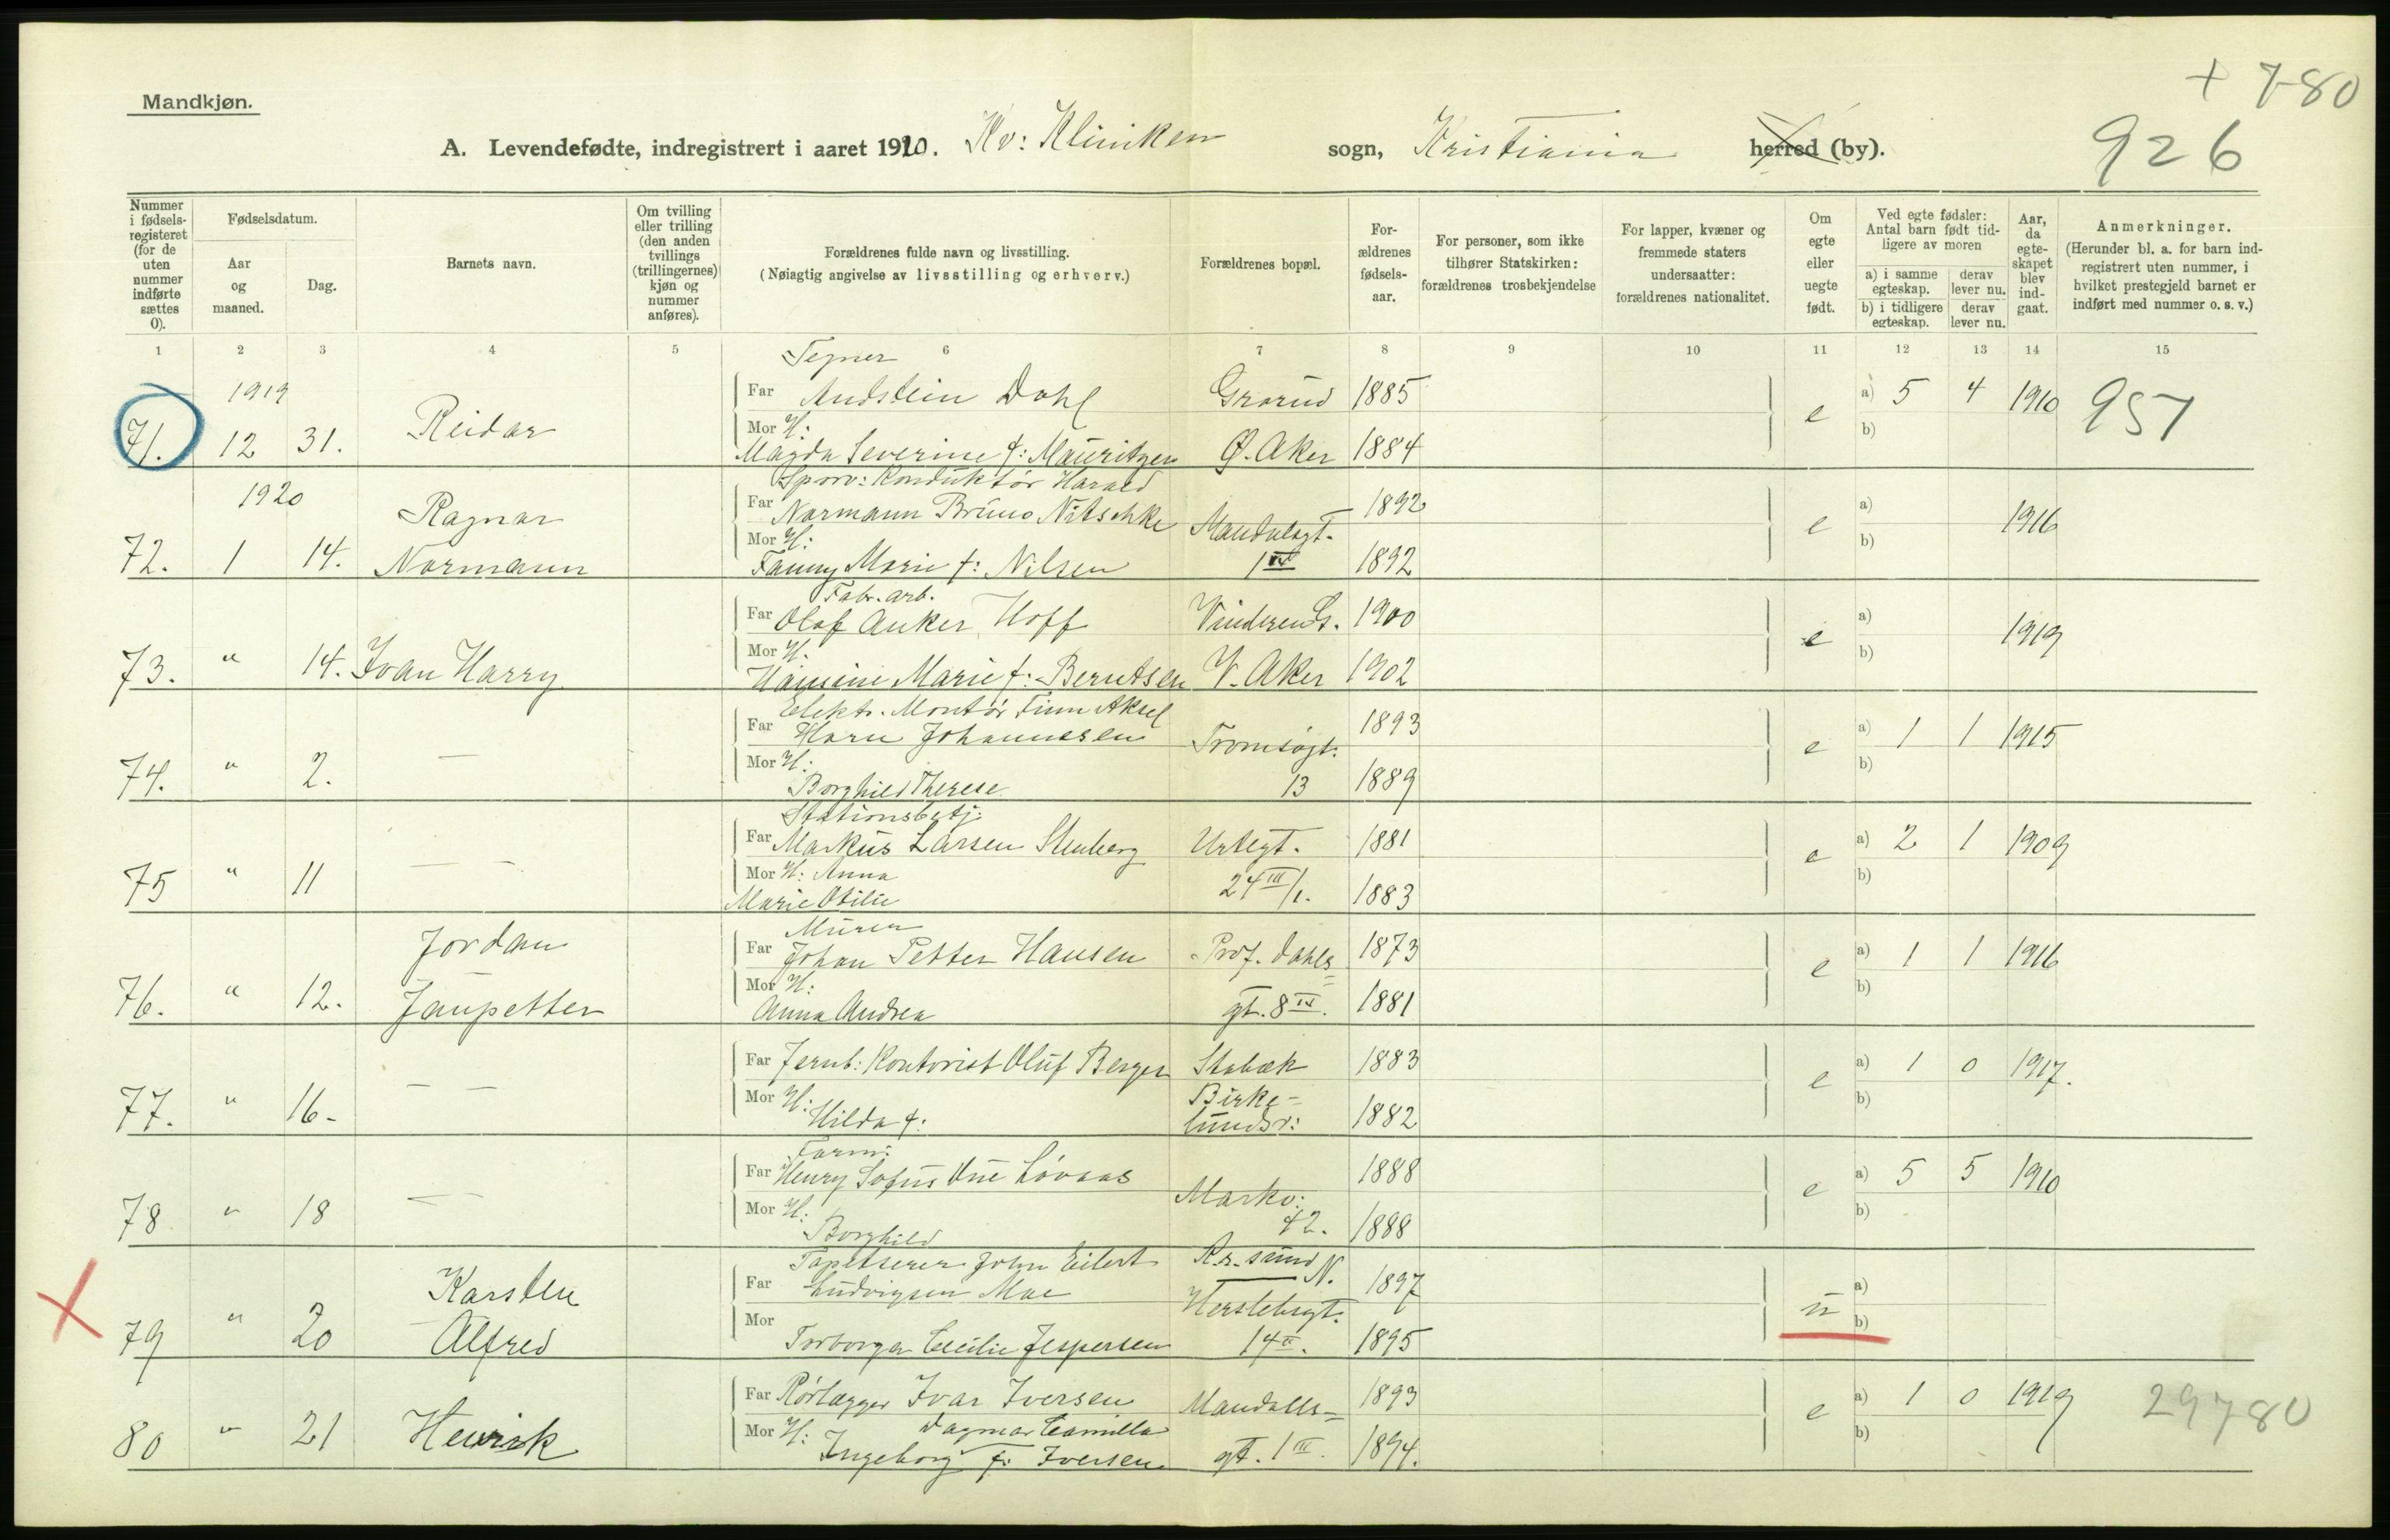 Mandkjøn.
+ 7-80
A. Levendefødte, indregistrert i aaret 1920. Kv: Kliniken sogn, Kristiania herred (by).
926
Nummer i fødsels-registeret (for de uten nummer indførte sættes 0).
Fødselsdatum.
Aar og maaned.
Dag.
Barnets navn.
Om tvilling eller trilling (den anden tvillings (trillingernes) kjøn og nummer anføres).
Forældrenes fulde navn og livsstilling.
(Nøiagtig angivelse av livsstilling og erhverv.)
Forældrenes bopæl.
For-ældrenes fødsels-aar.
For personer, som ikke tilhører Statskirken: forældrenes trosbekjendelse
For lapper, kvæner og fremmede staters undersaatter: forældrenes nationalitet.
Om egte eller uegte født.
Ved egte fødsler: Antal barn født tid-ligere av moren
a) i samme egteskap.
derav lever nu.
b) i tidligere egteskap.
derav lever nu.
Aar, da egte-skapet blev ind-gaat.
Anmerkninger.
(Herunder bl. a. for barn ind-registrert uten nummer, i hvilket prestegjeld barnet er indført med nummer o. s. v.)
1 2 3 4 5 6 7 8 9 10 11 12 13 14 15
Tegner
1919
Far Andstein Dahl Grorud 1885 a) 5 4 1910 957
71. 12 31. Reidar e
Mor H: b)
Magda Severine f: Mauritzen Ø. Aker 1884
Sporv: Konduktør Harald
1920
Ragnar Far Normann Bruno Nitschke 1892 a) 1916
Mor H: Mandalsgt. e b)
72. 1 14. Normann Fanny Marie f: Nilsen 1 III 1892
Fabr. arb.
Far Olaf Anker Hoff Vinderen St. 1900 a) 1919
Mor H. e b)
73. " 14. Ivan Harry Hansine Marie f: Berntsen V. Aker 1902
Elektr. Montør Finn Aksel
Far Horn Johannesen Tromsøgt. 1893 a) 1 1 1915
Mor H: e b)
74. " 2. — Borghild Therese 13 1889
Stationsbetj:
Far Markus Larsen Stenberg Urtegt. 1881 a) 2 1 1909
Mor H: Anna e b)
75 " 11 — — Marie Otilie 24 III/1. 1883
Murer
Jordan Far Johan Petter Hansen Prof. Dahls 1873 a) 1 1 1916
Mor H: e b)
76. " 12. Janpetter Anna Andrea gt. 8 IV. 1881
Far Jernb: Kontorist Oluf Berger Stabæk 1883 a) 1 0 1917.
Mor H: Birke- e b)
77. " 16- — — Hilda f: lundsv: 1882
Farm:
Far Henry Sofus Due Løvaas Markv: 1888 a) 5 5 1910
Mor H: e b)
78 " 18 — — Borghild 42. 1888
Tapetserer John Eilert Kr.sund N.
Karsten Far Ludvigsen Moe 1897 a)
Mor Herslebsgt. u b)
79 " 20 Alfred Torborga Cecilie Jespersen 14 II. 1895
Far Rørlægger Ivar Iversen Mandalls= 1893 a) 1 0 1919 29780
Mor H: Dagmar Camilla e b)
80 " 21 Henrik Ingeborg f: Iversen gt. 1 III. 1894.